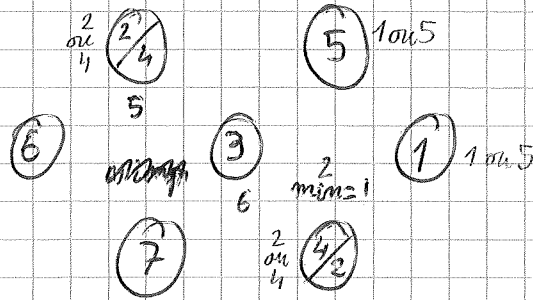 2
ou
4
2/4
5
1 ou 5
5
6
3
1
1 ou 5
2
min=1
6
7
2
ou
4
4/2